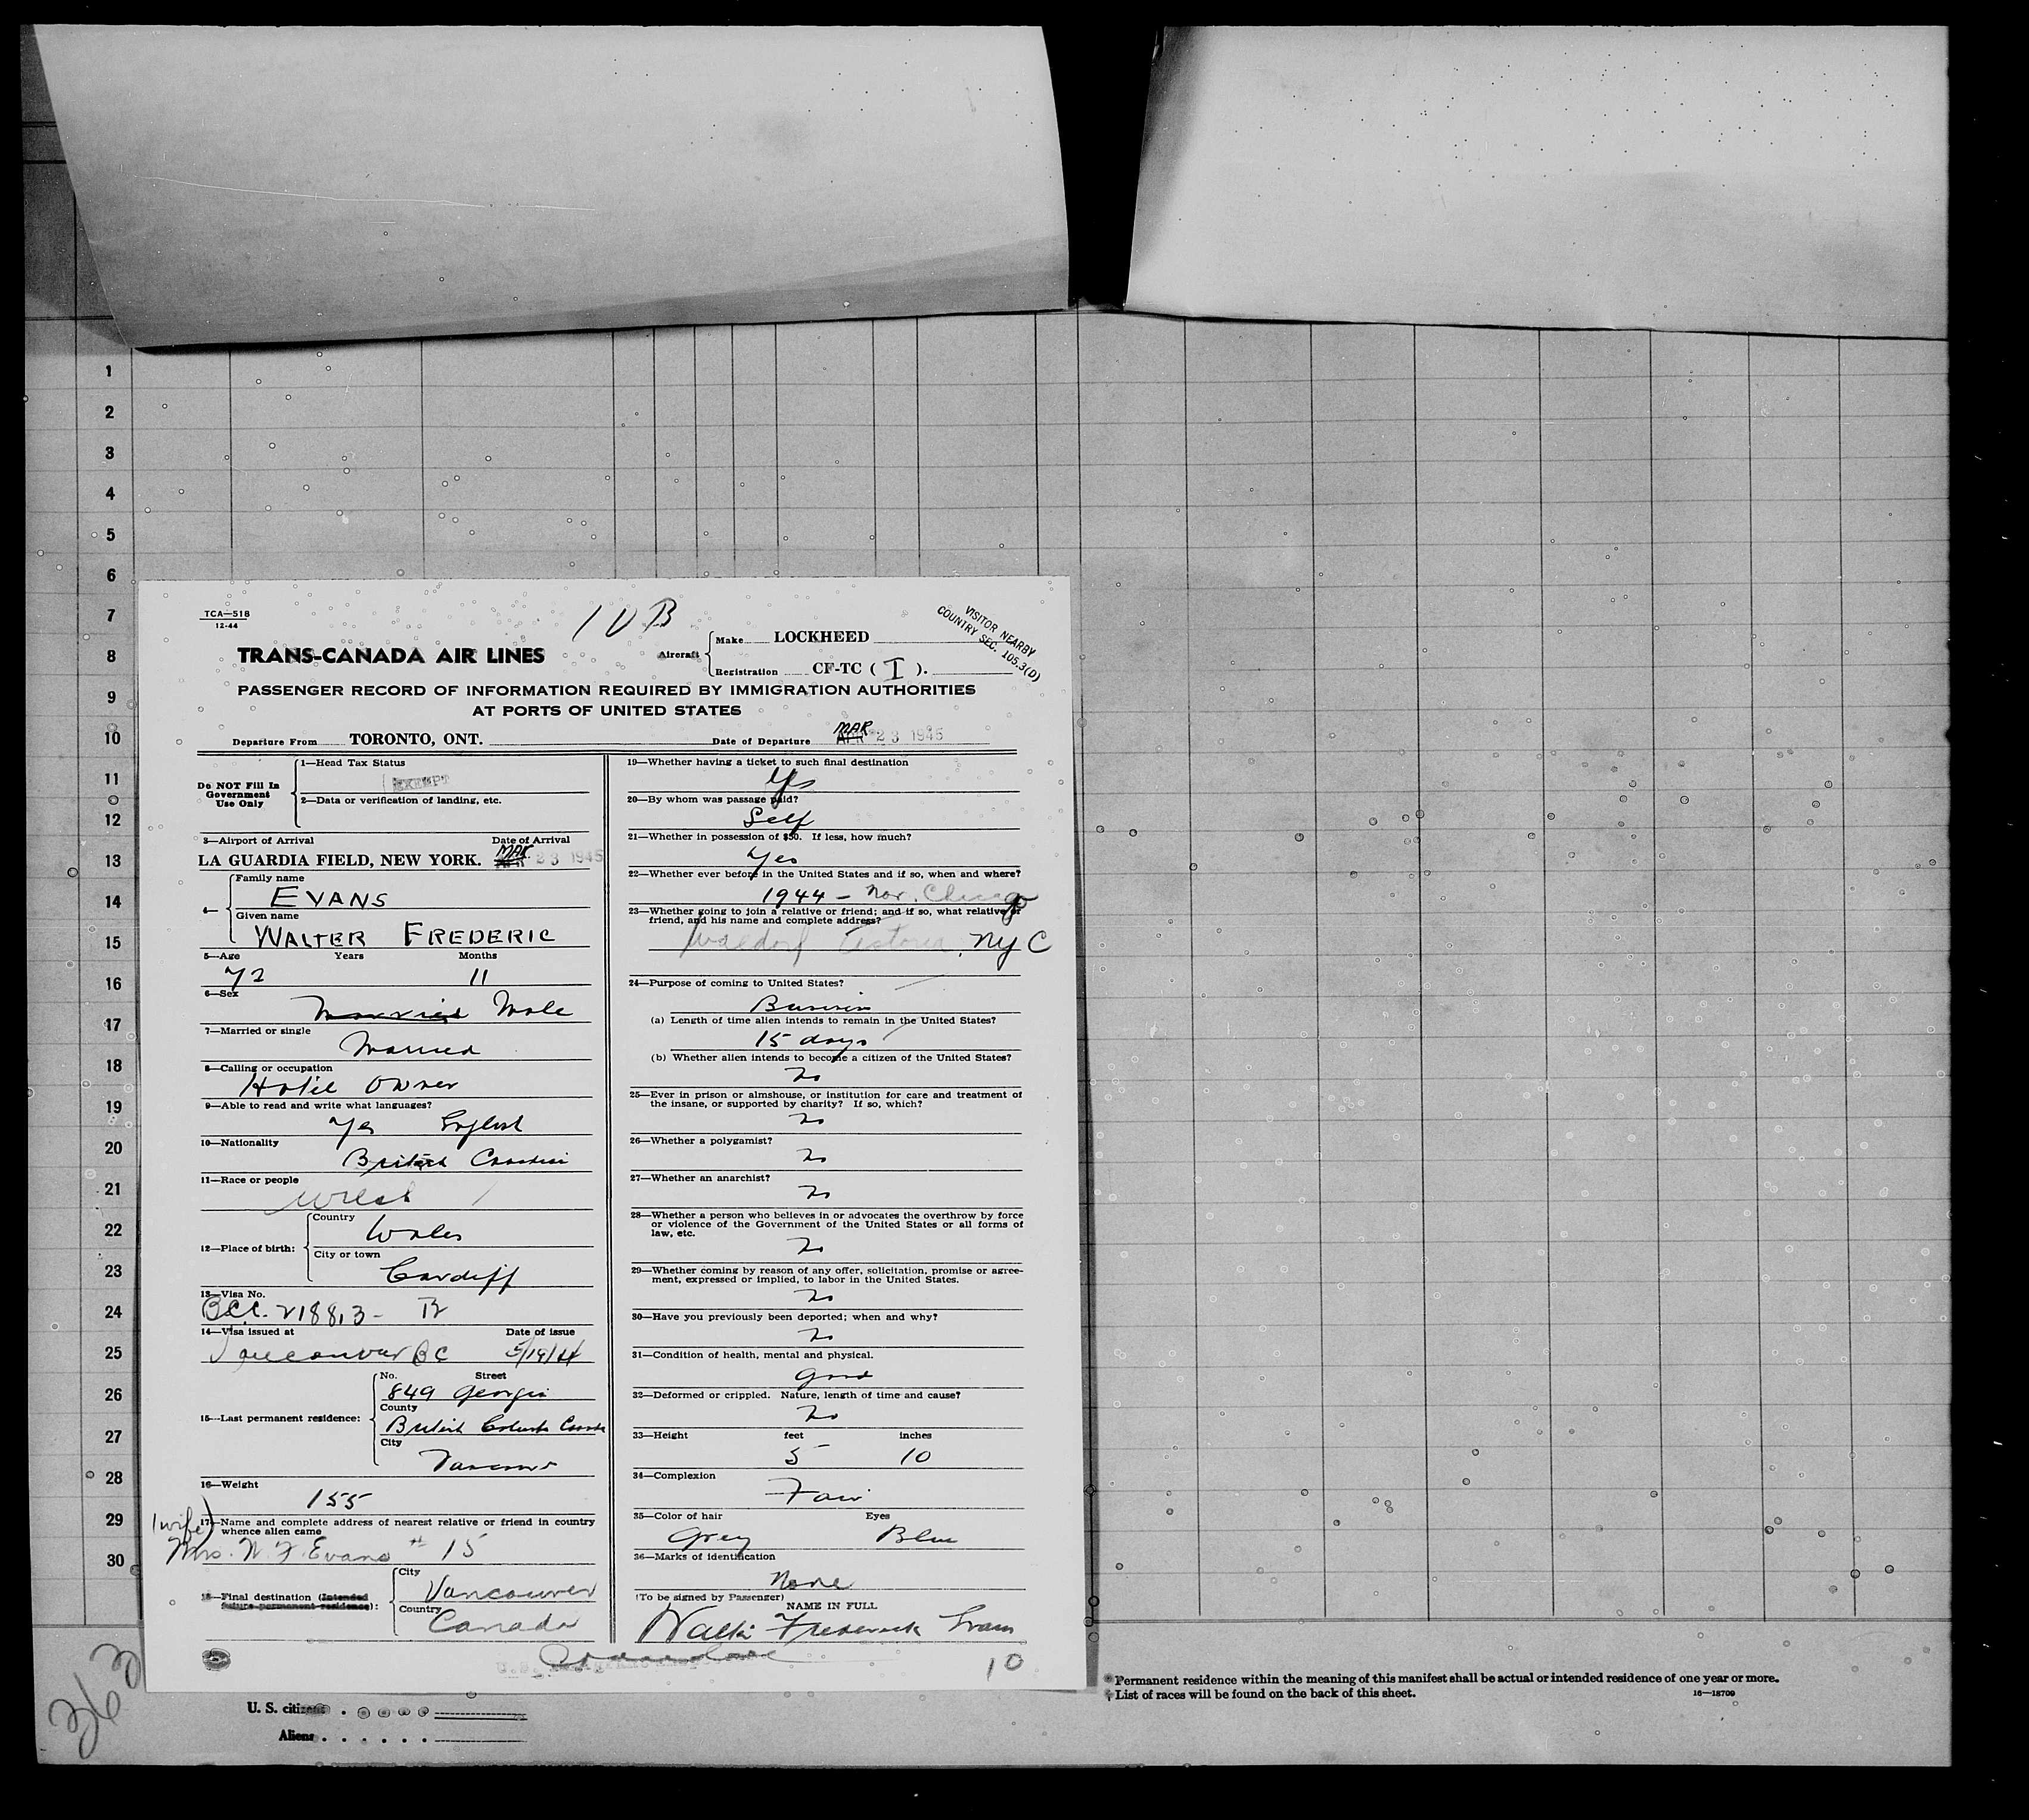 1
2
3
4
5
6
7
8
9
10
11
12
13
14
15
16
17
18
19
20
21
22
23
24
25
26
27
28
29
30
TCA—518
12-44
1 V B
VISITOR NEARBY
COUNTRY SEC. 105.3(D)
TRANS-CANADA AIR LINES
Aircraft
Make LOCKHEED
Registration CF-TC ( I ).
PASSENGER RECORD OF INFORMATION REQUIRED BY IMMIGRATION AUTHORITIES
AT PORTS OF UNITED STATES
Departure From TORONTO, ONT.
Date of Departure MAR APR 23 1945
Do NOT Fill In
Government
Use Only
1—Head Tax Status
EXEMPT
2—Data or verification of landing, etc.
3—Airport of Arrival Date of Arrival
LA GUARDIA FIELD, NEW YORK. MAR APR 23 1945
4—
Family name
EVANS
Given name
WALTER FREDERIC
5—Age Years Months
72 11
6—Sex
Married Male
7—Married or single
Married
8—Calling or occupation
Hotel Owner
9—Able to read and write what languages?
Yes English
10—Nationality
British Canadian
11—Race or people
Welsh
12—Place of birth:
Country
Wales
City or town
Cardiff
13—Visa No.
BCC. 21883 -
14—Visa issued at Date of issue
Vancouver BC 5/19/44
15—Last permanent residence:
No. Street
849 Georgia
County
British Columbia Canada
City
Vancouver
16—Weight
155
(wife)
17—Name and complete address of nearest relative or friend in country
whence alien came
Mrs. W. F. Evans # 15
18—Final destination (Intended
future permanent residence):
City
Vancouver
Country
Canada
19—Whether having a ticket to such final destination
Yes
20—By whom was passage paid?
Self
21—Whether in possession of $50. If less, how much?
Yes
22—Whether ever before in the United States and if so, when and where?
1944 — Nov. Chicago
23—Whether going to join a relative or friend; and if so, what relative or
friend, and his name and complete address?
Waldorf Astoria, NYC
24—Purpose of coming to United States?
Business
(a) Length of time alien intends to remain in the United States?
15 days
(b) Whether alien intends to become a citizen of the United States?
No
25—Ever in prison or almshouse, or institution for care and treatment of
the insane, or supported by charity? If so, which?
No
26—Whether a polygamist?
No
27—Whether an anarchist?
No
28—Whether a person who believes in or advocates the overthrow by force
or violence of the Government of the United States or all forms of
law, etc.
No
29—Whether coming by reason of any offer, solicitation, promise or agree-
ment, expressed or implied, to labor in the United States.
No
30—Have you previously been deported; when and why?
No
31—Condition of health, mental and physical.
Good
32—Deformed or crippled. Nature, length of time and cause?
No
33—Height feet inches
5 10
34—Complexion
Fair
35—Color of hair Eyes
Grey Blue
36—Marks of identification
None
(To be signed by Passenger)
NAME IN FULL
Walter Frederick Evans
10
363
U. S. citizens
Aliens
* Permanent residence within the meaning of this manifest shall be actual or intended residence of one year or more.
† List of races will be found on the back of this sheet.
16—18709